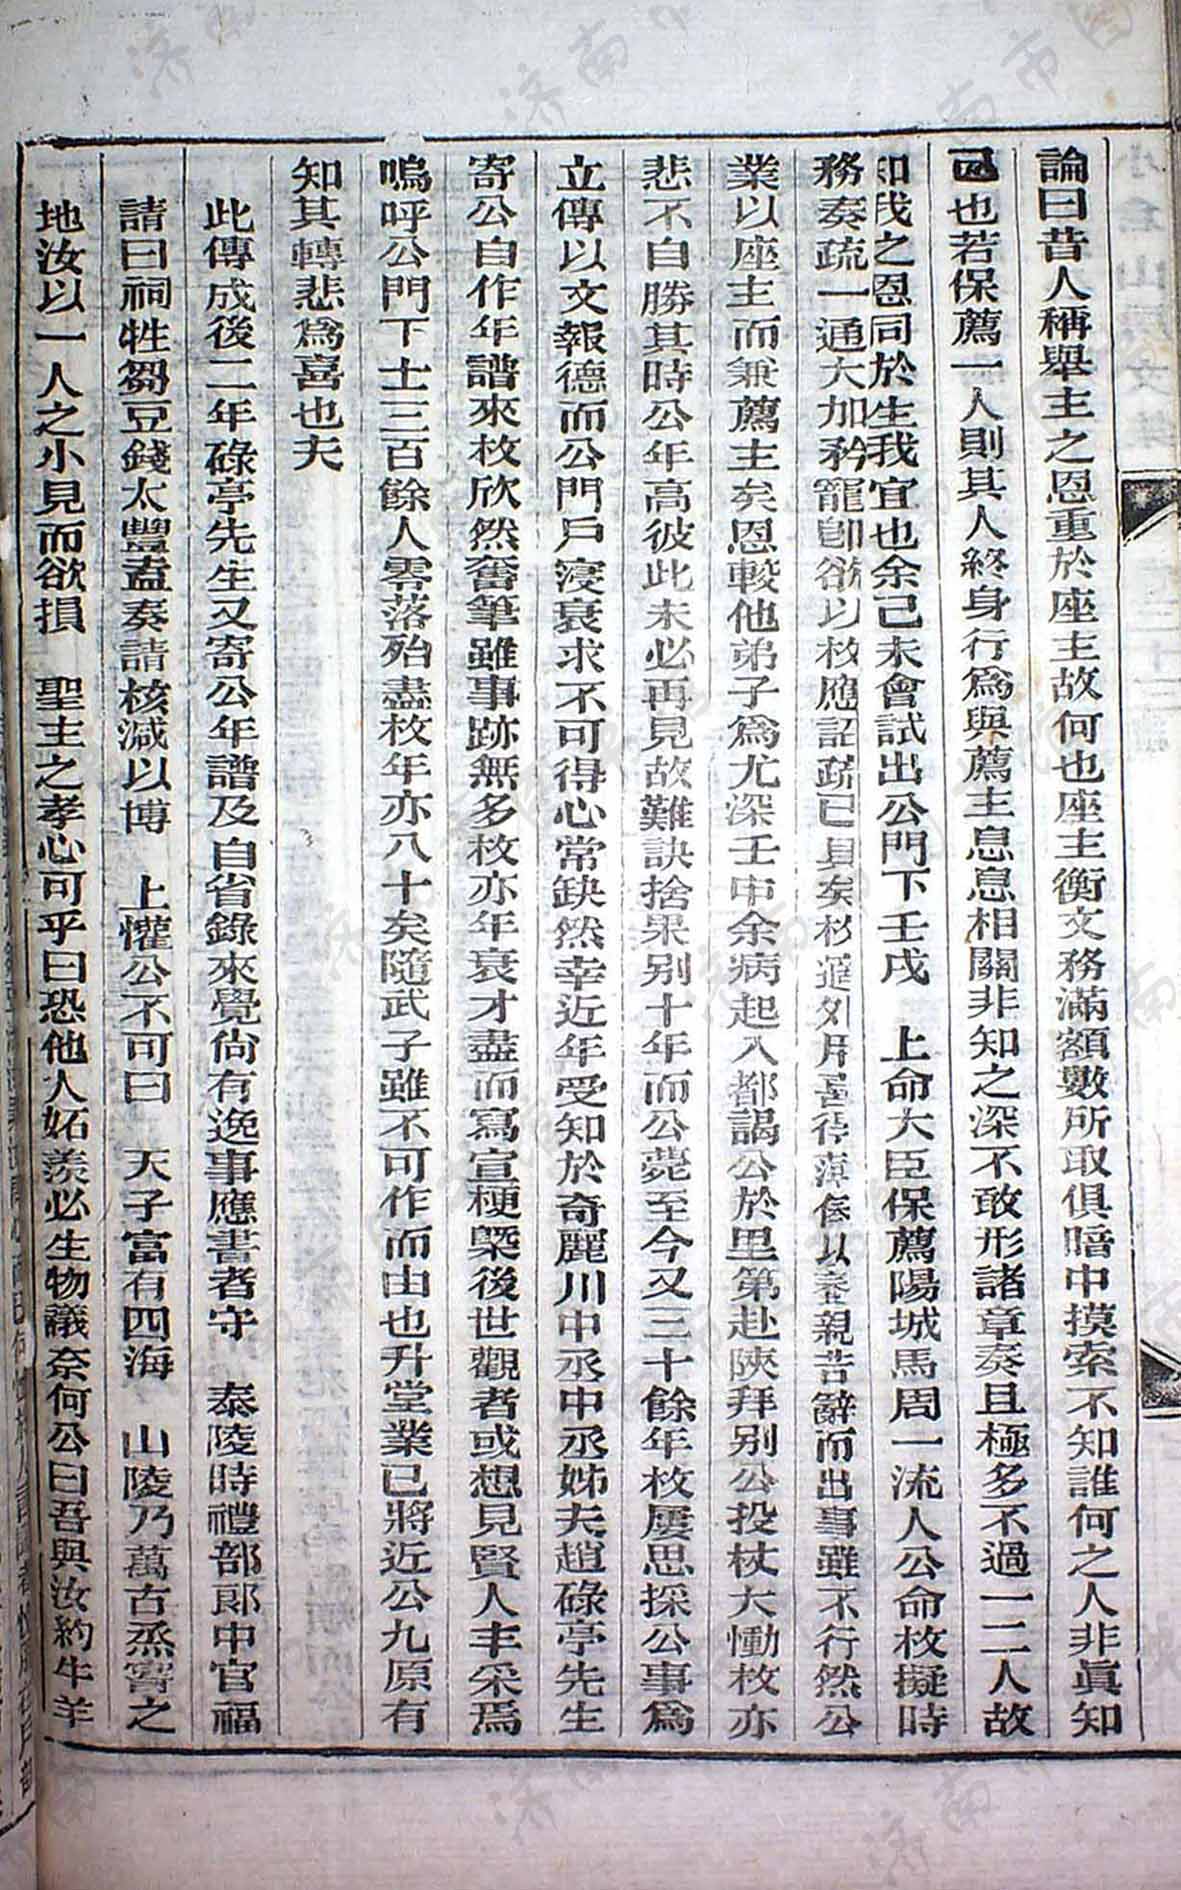 論曰昔人稱舉主之恩重於座主故何也座主衡文務滿額數所取俱暗中摸索不知誰何之人非眞知
己也若保薦一人則其人終身行爲與薦主息息相關非知之深不敢形諸章奏且極多不過一二人故
知我之恩同於生我宜也余己未會試出公門下壬戌　上命大臣保薦陽城馬周一流人公命枚擬時
務奏疏一通大加矜寵卽欲以枚應詔疏已具矣枚選外用喜得薄俸以養親苦辭而出事雖不行然公
業以座主而兼薦主矣恩較他弟子爲尤深壬申余病起入都謁公於里第赴陝拜別公投杖大慟枚亦
悲不自勝其時公年高彼此未必再見故難訣捨果別十年而公薨至今又三十餘年枚屢思採公事爲
立傳以文報德而公門戶寖衰求不可得心常缺然幸近年受知於奇麗川中丞中丞姊夫趙碌亭先生
寄公自作年譜來枚欣然奮筆雖事跡無多枚亦年衰才盡而寫宣梗槩後世觀者或想見賢人丰采焉
嗚呼公門下士三百餘人零落殆盡枚年亦八十矣隨武子雖不可作而由也升堂業已將近公九原有
知其轉悲爲喜也夫
此傳成後二年碌亭先生又寄公年譜及自省錄來覺尙有逸事應書者守　泰陵時禮部郎中官福
請曰祠牲芻豆錢太豐盍奏請核減以博　上懽公不可曰　天子富有四海　山陵乃萬古烝嘗之
地汝以一人之小見而欲損　聖主之孝心可乎曰恐他人妬羨必生物議奈何公曰吾與汝約牛羊